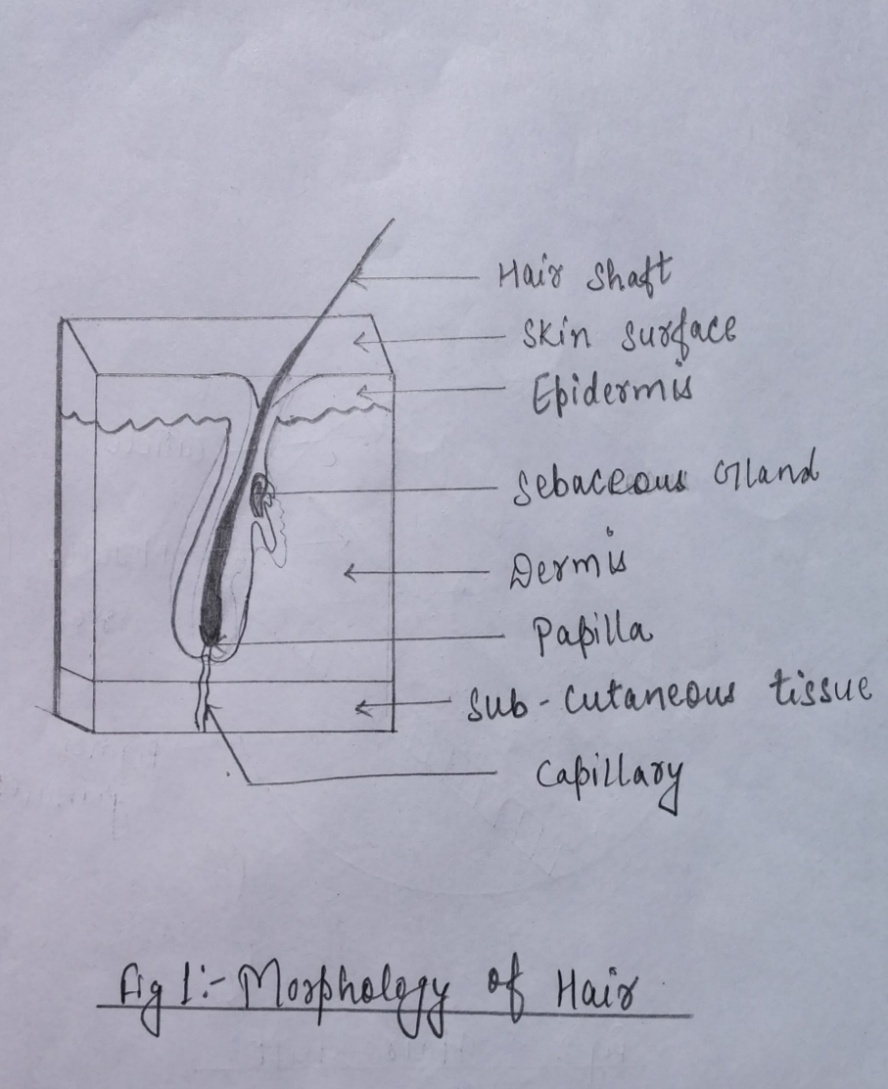 Hair Shaft
Skin Surface
Epidermis
Sebaceous Gland
Dermis
Papilla
Sub-Cutaneous tissue
Capillary
Fig 1:- Morphology of Hair